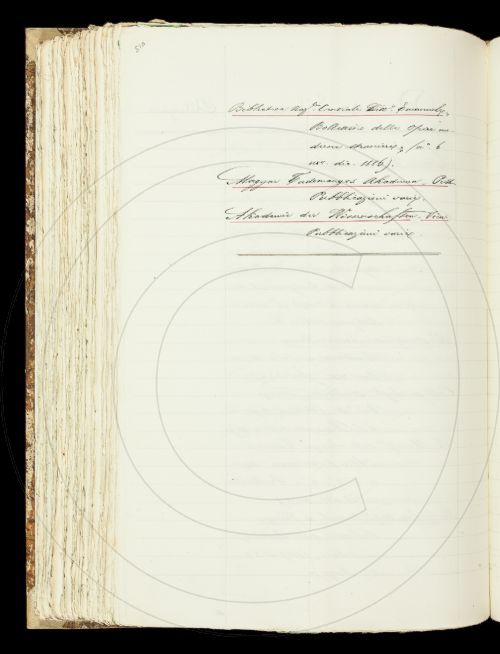 510
Biblioteca Naz.le Centrale Vitt.o Emanuele,
Bollettino delle Opere mo
derne straniere, (n.o 6
nov. dic. 1886).
Magyar Tudományos Akadémia, Pest
Pubblicazioni varie.
Akademie der Wissenschaften, Vien
Pubblicazioni varie.